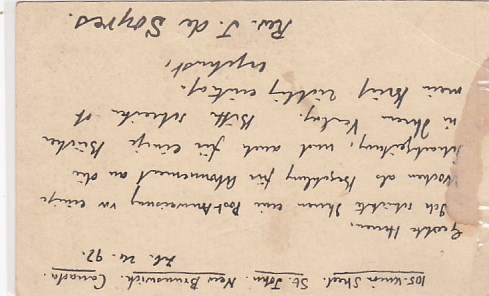 105 Union Street. St. John. New Brunswick. Canada.
Feb. 24. 92.
Geehrte Herren,
Ich schickte Ihnen eine Post-Anweisung vor einige
Wochen als Bezahlung für Abonnement an die
Schachzeitung, und auch für einige Bücher
in Ihrem Verlag. Bitte schreiben ob
mein Brief richtig eintraf.
ergebenst,
Rev. J. de Soyres.